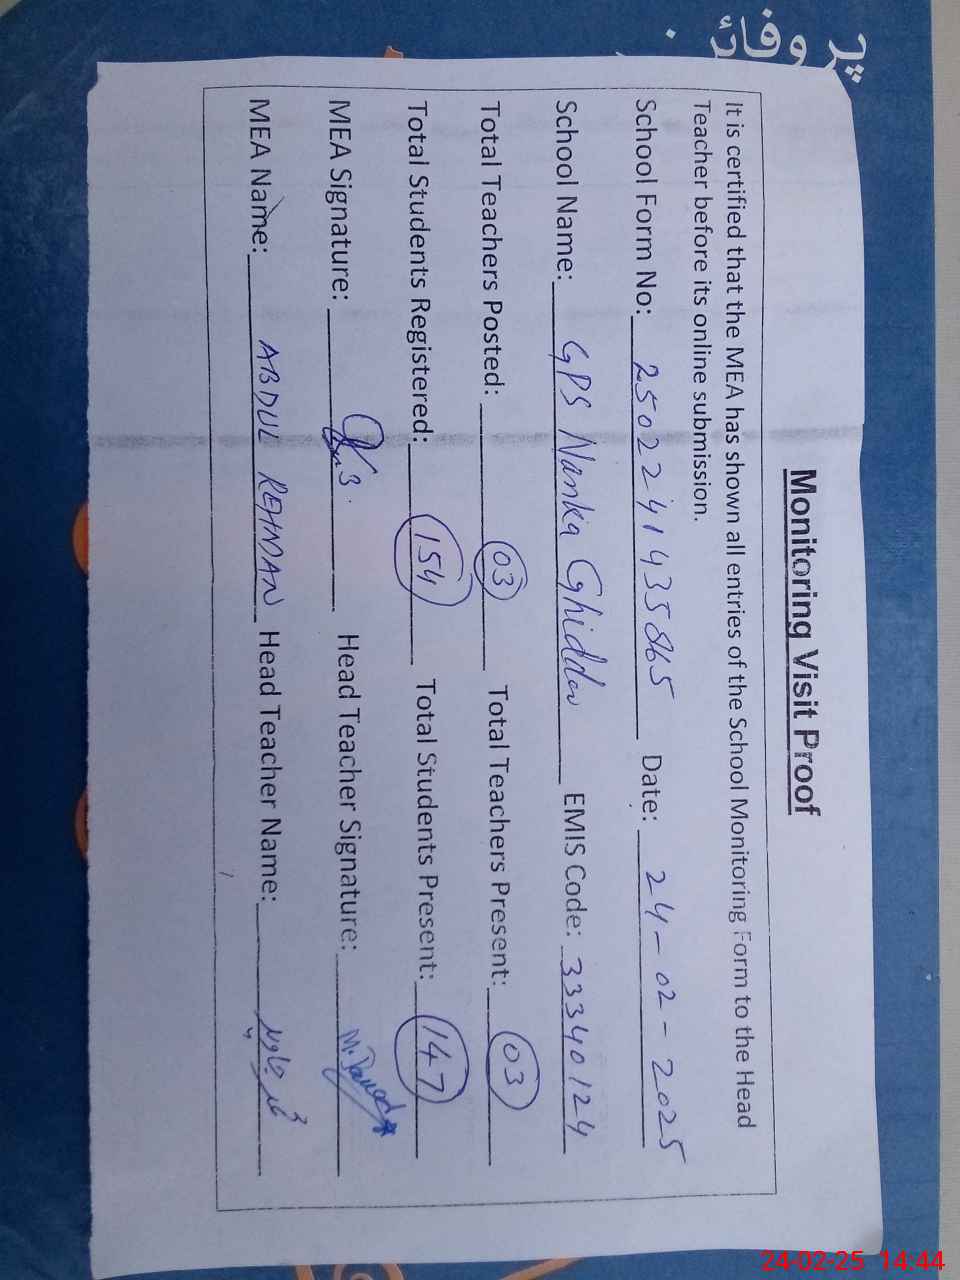 Monitoring Visit Proof
It is certified that the MEA has shown all entries of the School Monitoring Form to the Head
Teacher before its online submission.
School Form No: 2502241435865 Date: 24-02-2025
School Name: GPS Nanka Ghiddar EMIS Code: 33340124
Total Teachers Posted: 03 Total Teachers Present: 03
Total Students Registered: 154 Total Students Present: 147
MEA Signature: Head Teacher Signature: M. Dawood
MEA Name: ABDUL REHMAN Head Teacher Name:
24-02-25 14:44